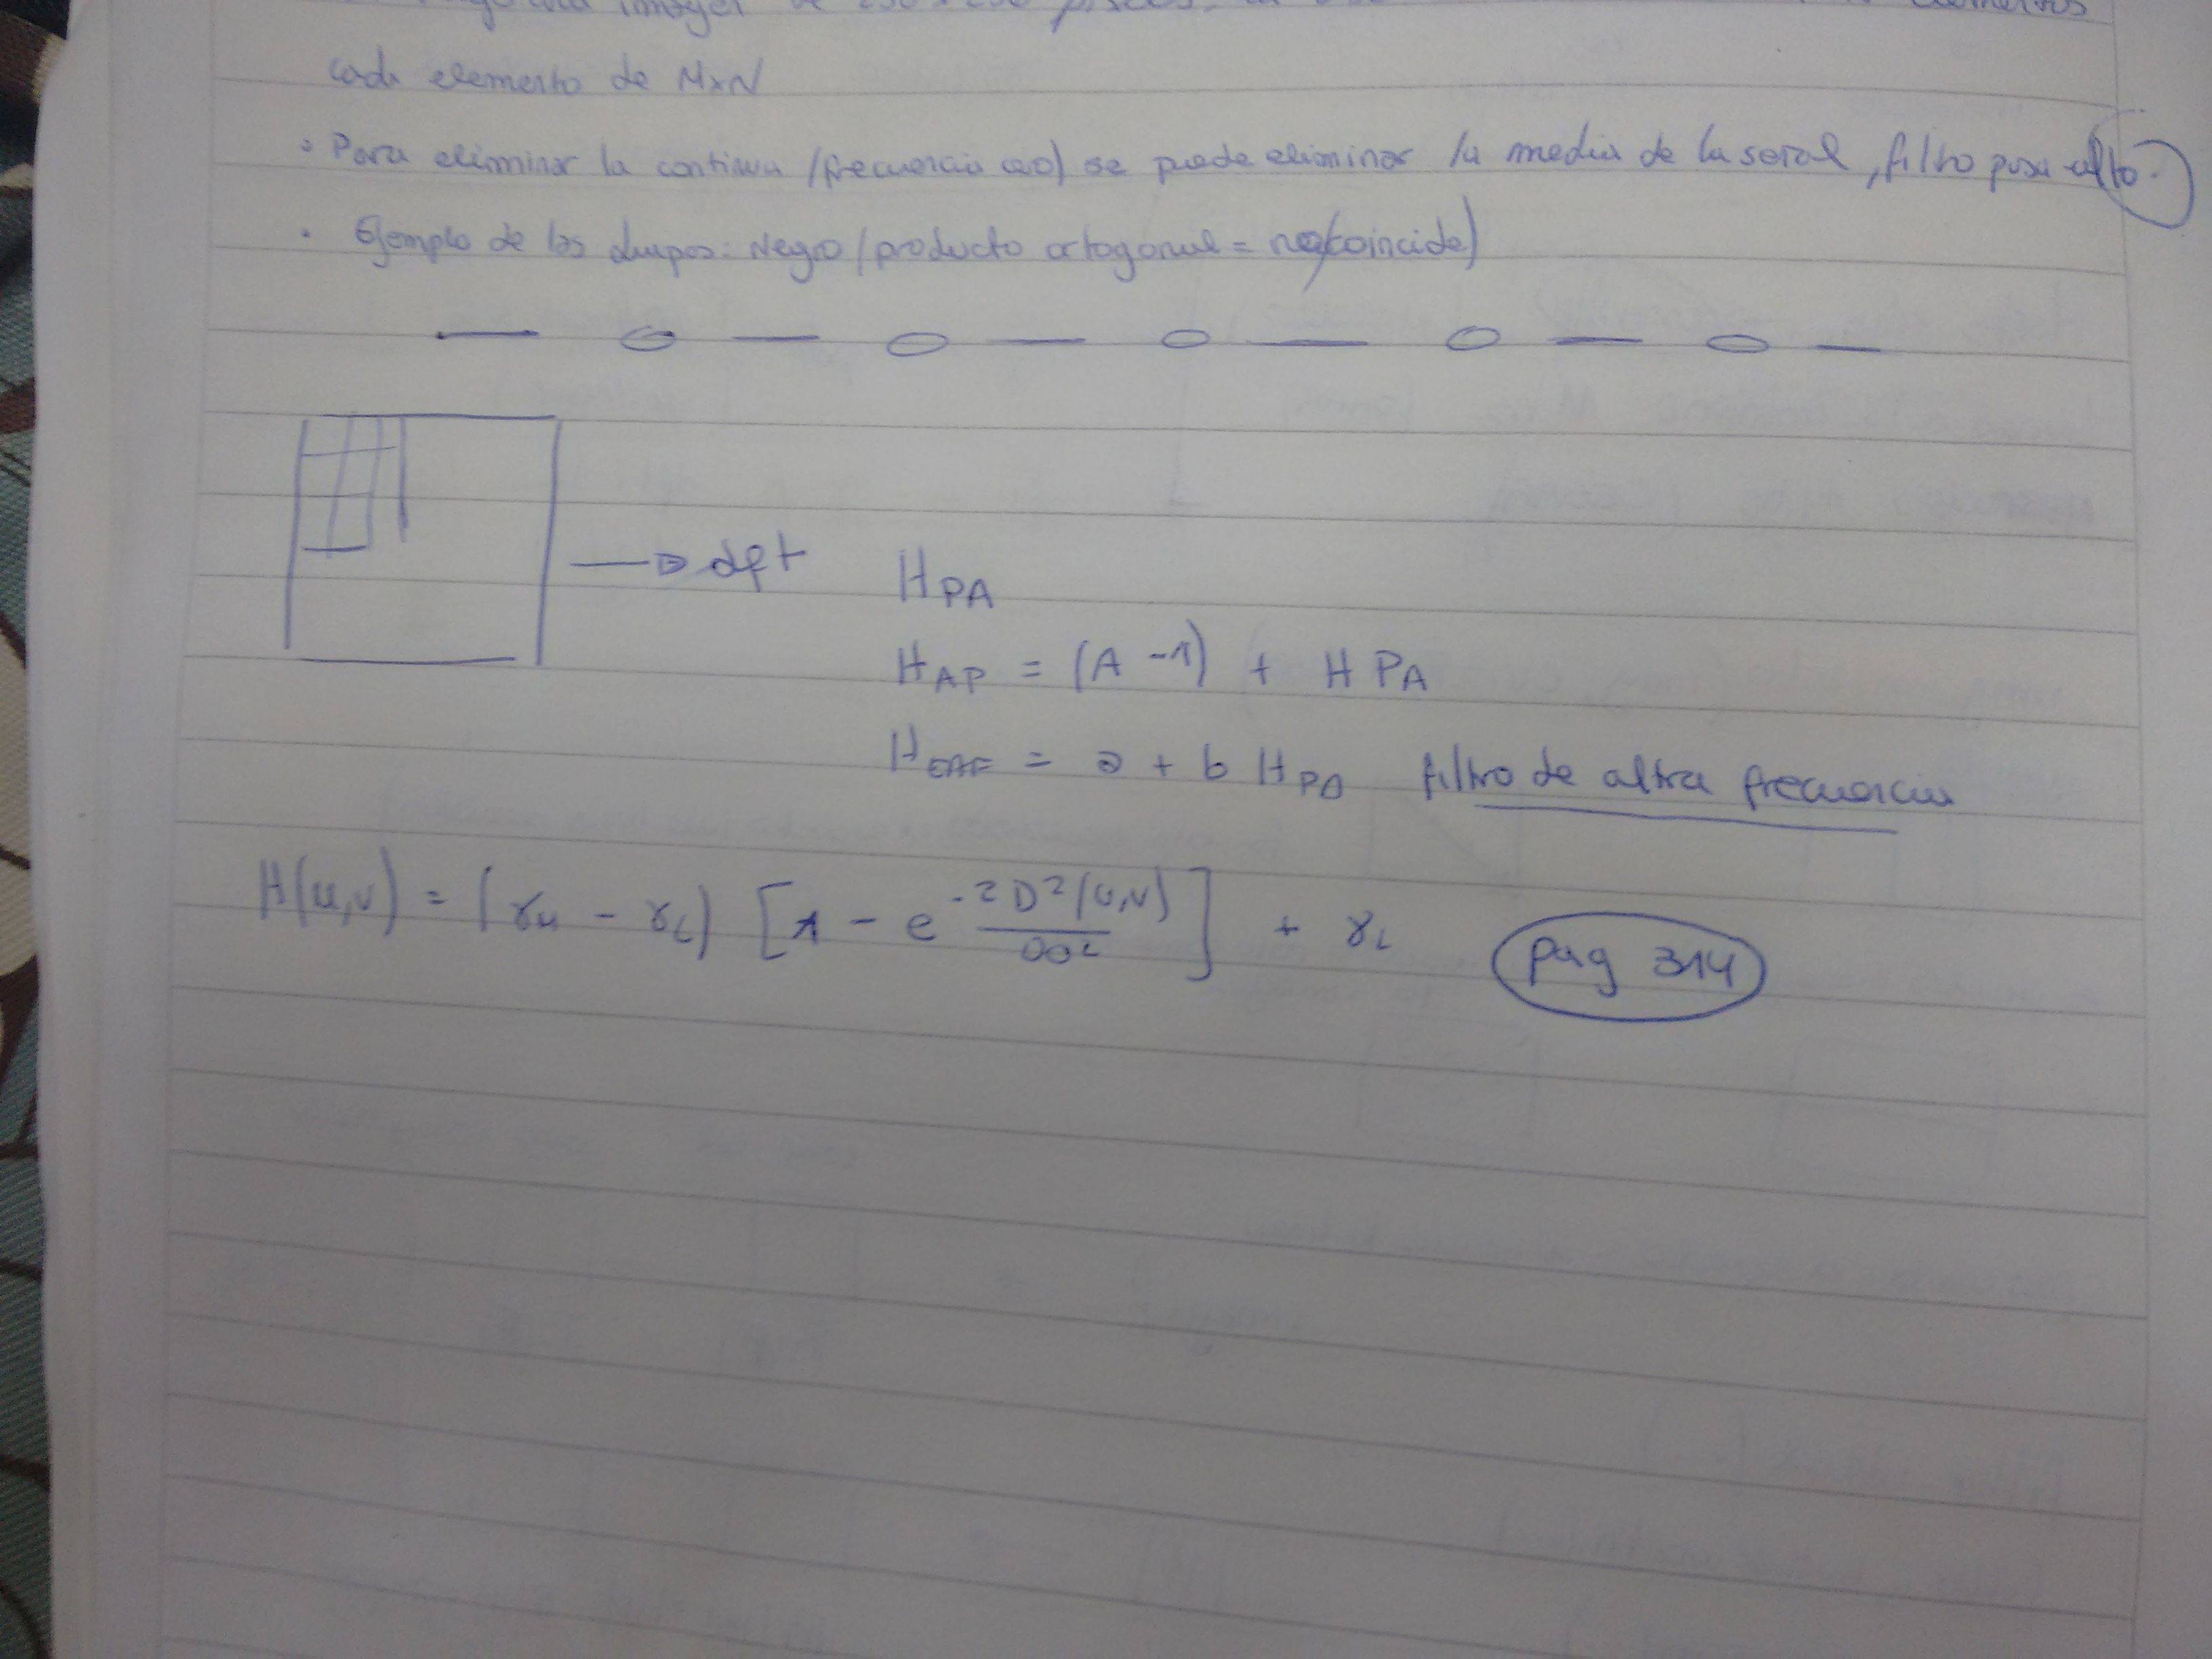 imagen de 256x256 pixeles, elementos
cada elemento de MxN
• Para eliminar la continua (frecuencia cero) se puede eliminar la media de la señal, filtro pasa alto.
• Ejemplo de las : Negro (producto ortogonal = no coincide)
→ dft H_PA
H_AP = (A - 1) + H_PA
H_EAF = a + b H_PA filtro de altra frecuencia
H(u,v) = (γ_H - γ_L) [1 - e^{-2 D²(u,v)/D0²}] + γ_L pag 314